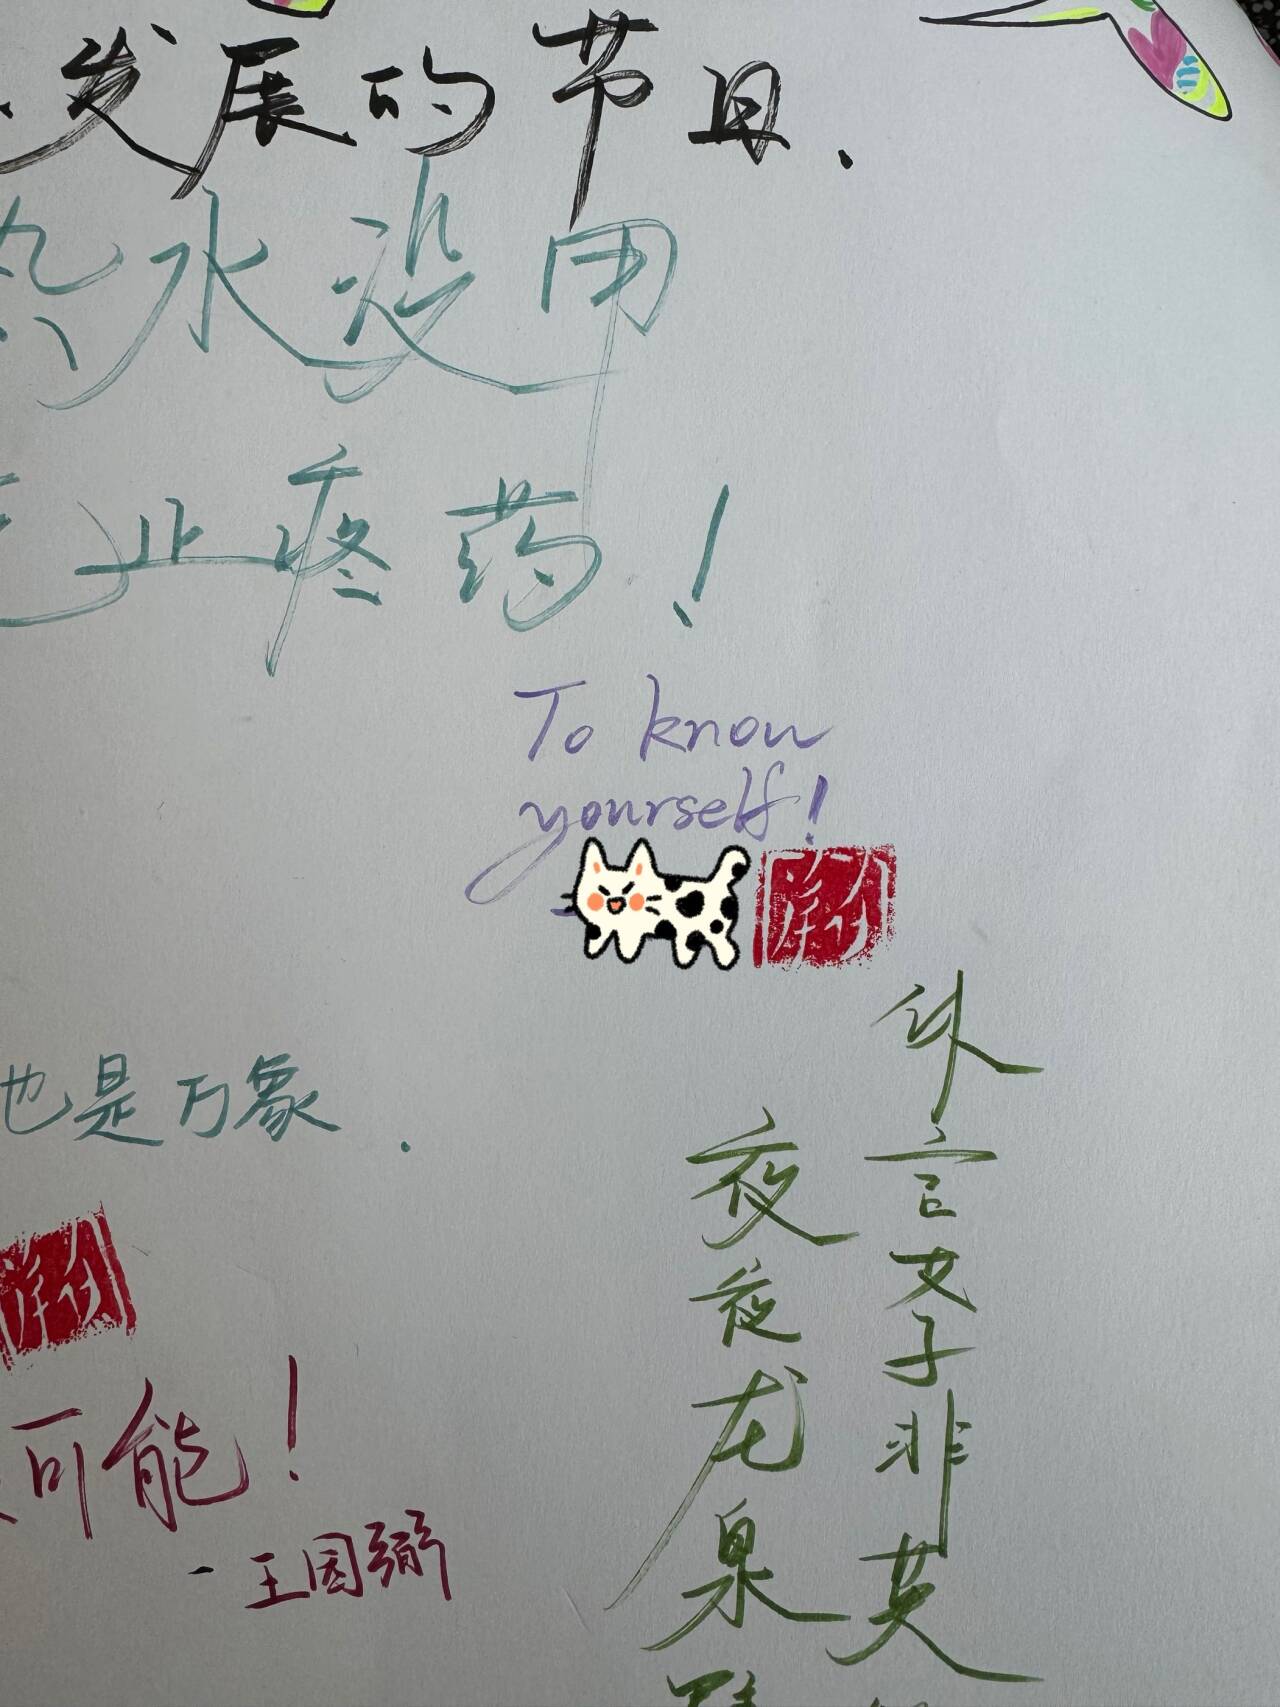 发展的节日.
热水没用
止疼药!
To know
yourself!
也是万象.
休言女子非英
夜夜龙泉
可能!
-王国弼